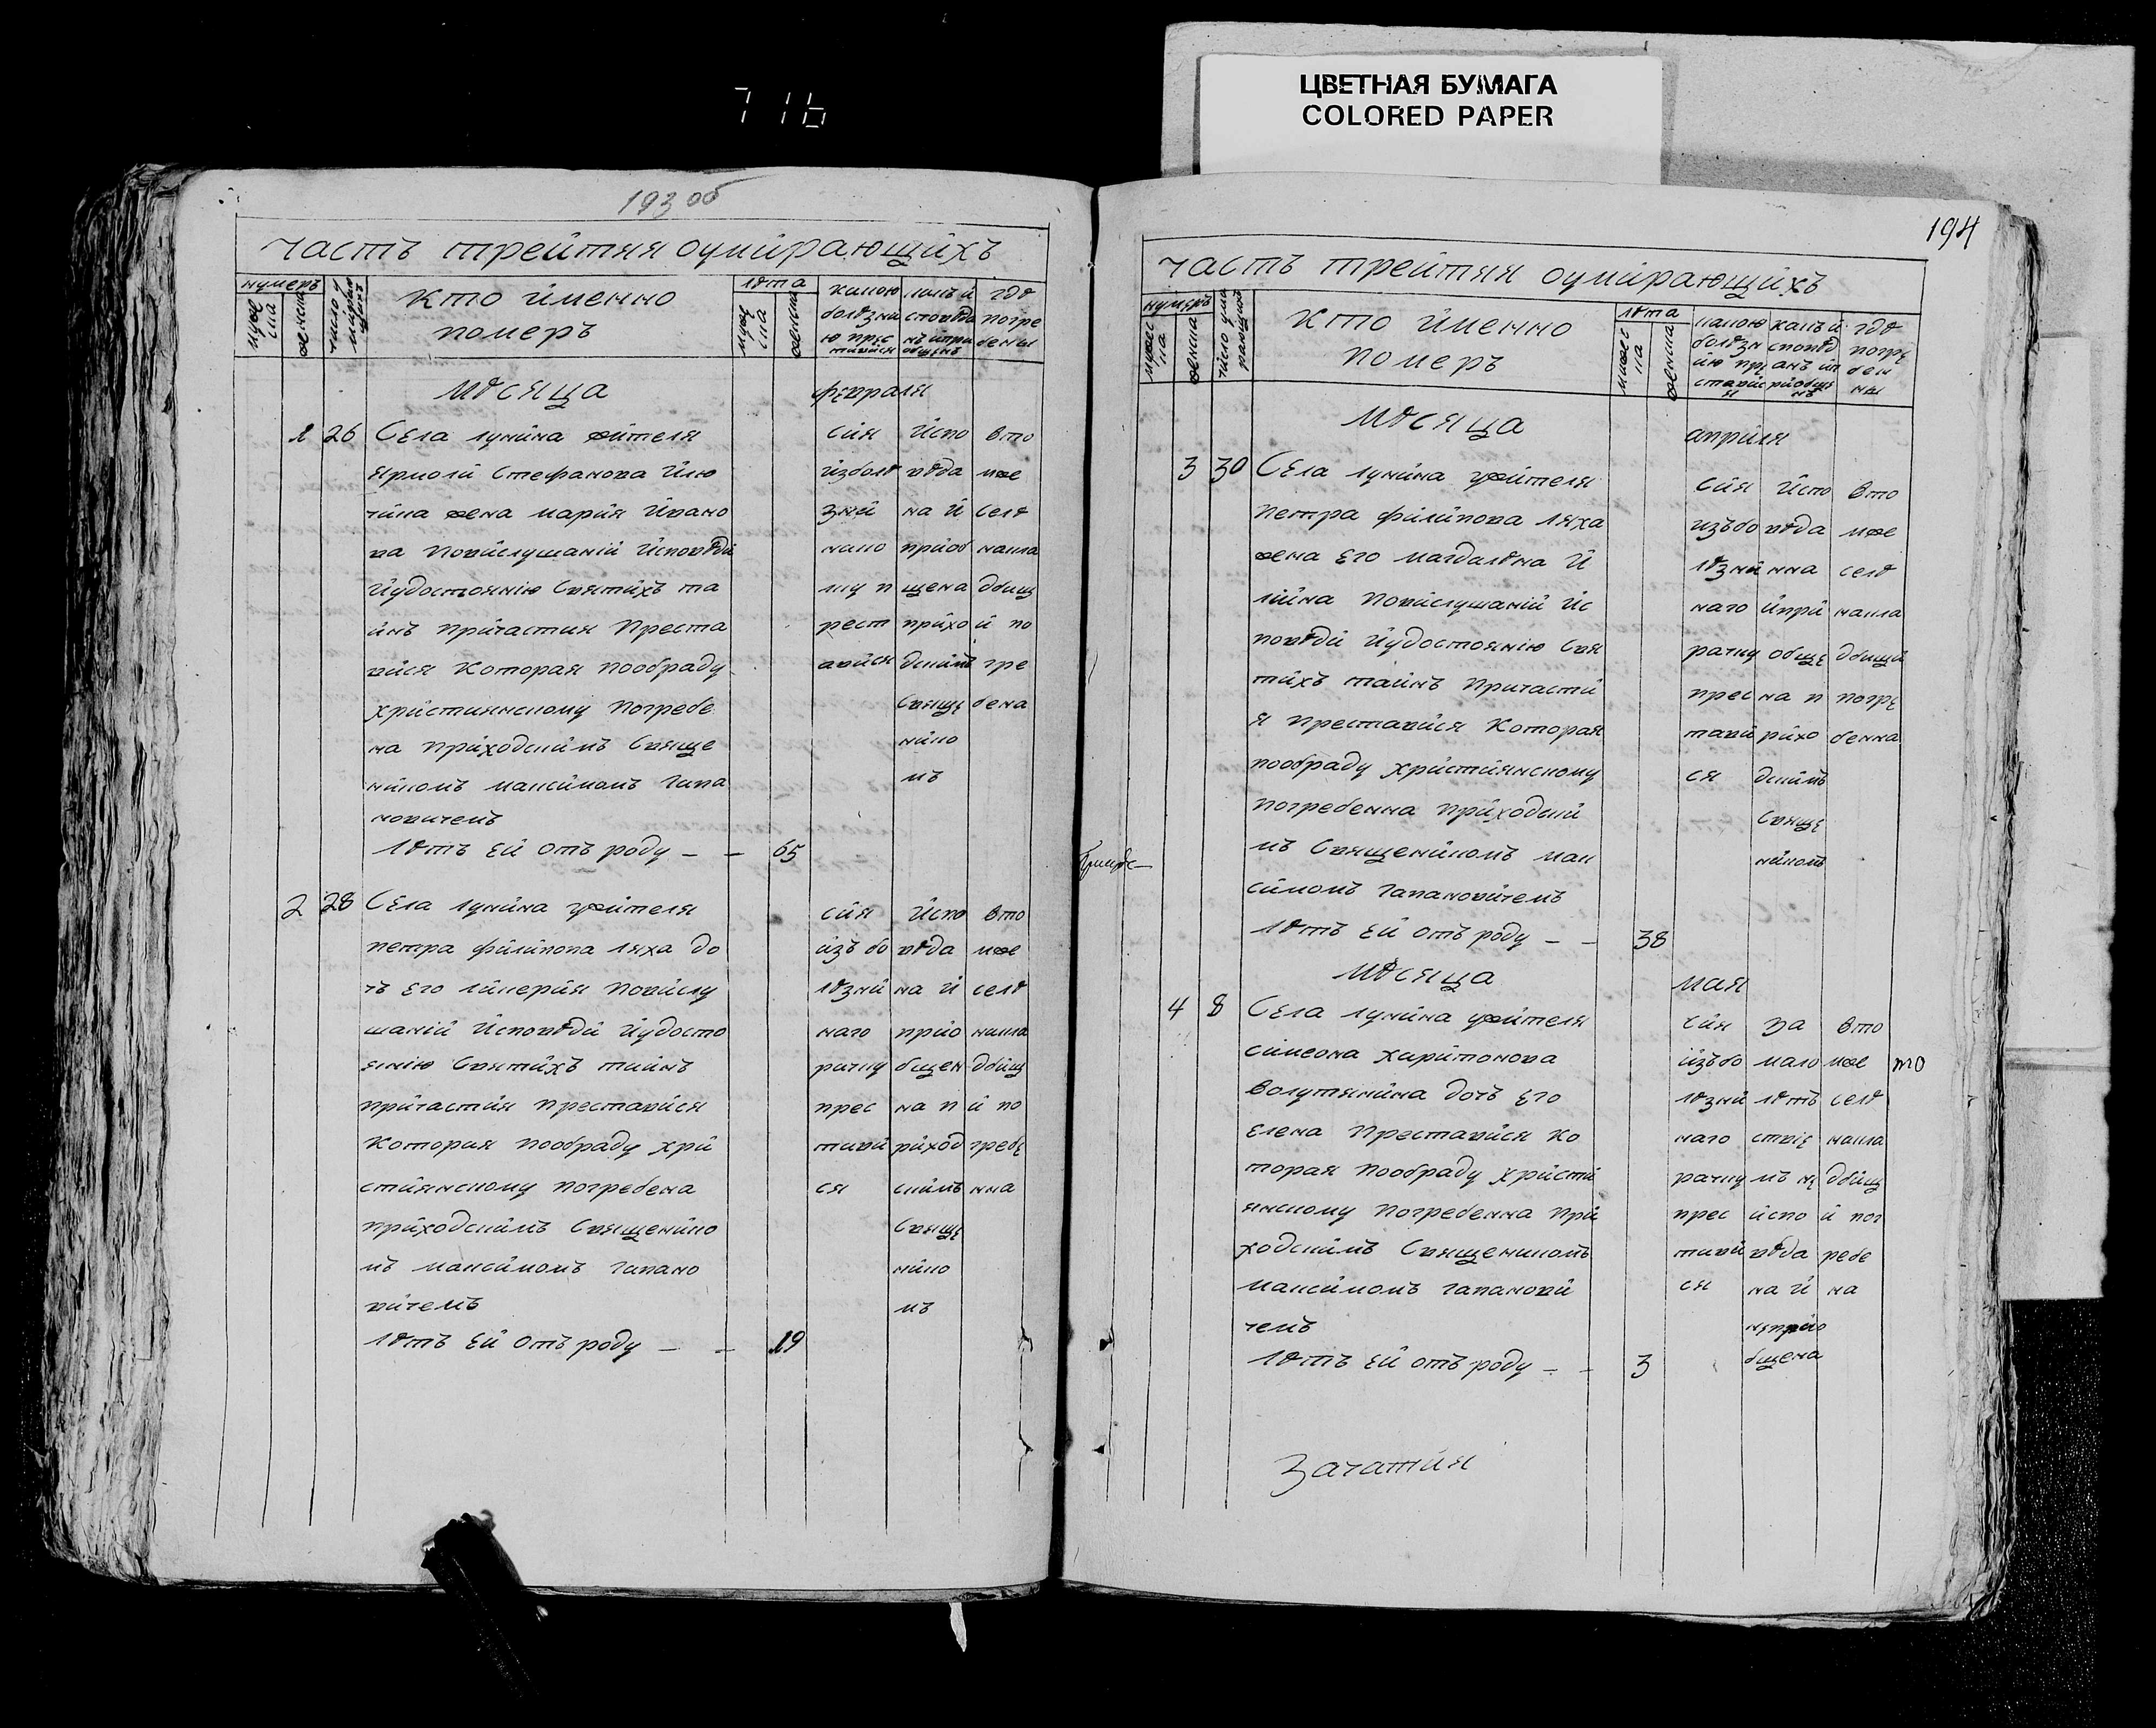 716
ЦВЕТНАЯ БУМАГА
COLORED PAPER
193 об
часть трейтяя оумирающихъ
нумеръ
кто именно
померъ
лѣта
какою
болѣзни
ю прес
тавися
какъ и
сповѣда
нъ и при
общенъ
гдѣ
погре
бены
мѣсяца
февраля
1 26 Села лунина жителя
ярмоли Стефанова Илю
чика жена мария Ивано
ва Повислушании Исповѣди
Иудостоянию Святихъ та
инъ причастия Преста
вися Которая пообраду
християнскому погребе
на приходскимъ Свяще
никомъ максимомъ гапа
новичемъ
лѣтъ Ей отъ роду — — 65
сия
изболѣ
зни
како
шу п
рест
ависи
Испо
вѣда
на И
приоб
щена
прихо
дским
Свяще
нико
мъ
вто
мже
селѣ
накла
дбищ
и по
гре
бена
2 28 Села лунина ужителя
петра филипова ляха до
чъ его ликерия повислу
шании Исповѣди Иудосто
янию Святихъ таинъ
причастия преставися
Которая пообраду хри
стиянскому погребена
приходскимъ Священико
мъ максимомъ гапано
вичемъ
лѣтъ Ей отъ роду — — 19
сия
изъ бо
лѣзни
наго
рачку
прес
тави
ся
Испо
вѣда
на И
прио
бщен
на п
риход
скимъ
Свяще
нико
мъ
вто
мже
селѣ
накла
дбищ
и по
гребе
нна
194
часть трейтяя оумирающихъ
нумеръ
кто именно
померъ
лѣта
какою
болѣзн
ию пре
ставис
я
какъ и
сповѣд
анъ ип
риобще
нъ
гдѣ
погре
бен
ны
мѣсяца
априля
3 30 Села лунина ужителя
петра филипова ляха
жена его магдалѣна И
лиина Повислушании Ис
повѣди Иудостоянию Свя
тихъ таинъ Причасти
я преставися Которая
пообраду християнскому
погребенна приходски
мъ Священикомъ мак
симомъ гапановичемъ
лѣтъ Ей отъ роду — — 38
сия
изъбо
лѣзни
наго
рачку
прес
тави
ся
Испо
вѣда
нна
ипри
обще
на п
рихо
дскимъ
Свяще
никомъ
вто
мже
селѣ
накла
дбищи
погре
бенна
мѣсяца
мая
4 8 Села лунина ужителя
симеона харитонова
волутянина дочъ его
елена Преставися ко
торая пообраду христи
янскому погребенна при
ходскимъ Священикомъ
максимомъ гапанови
чемъ
лѣтъ ей отъ роду — — 3
сия
изъбо
лѣзни
наго
рачку
прес
тави
ся
за
мало
лѣтъ
ствие
мъ не
испо
вѣда
на И
неприо
бщена
вто
мже
селѣ
накла
дбищ
и пог
ребе
на
то
Зачатия